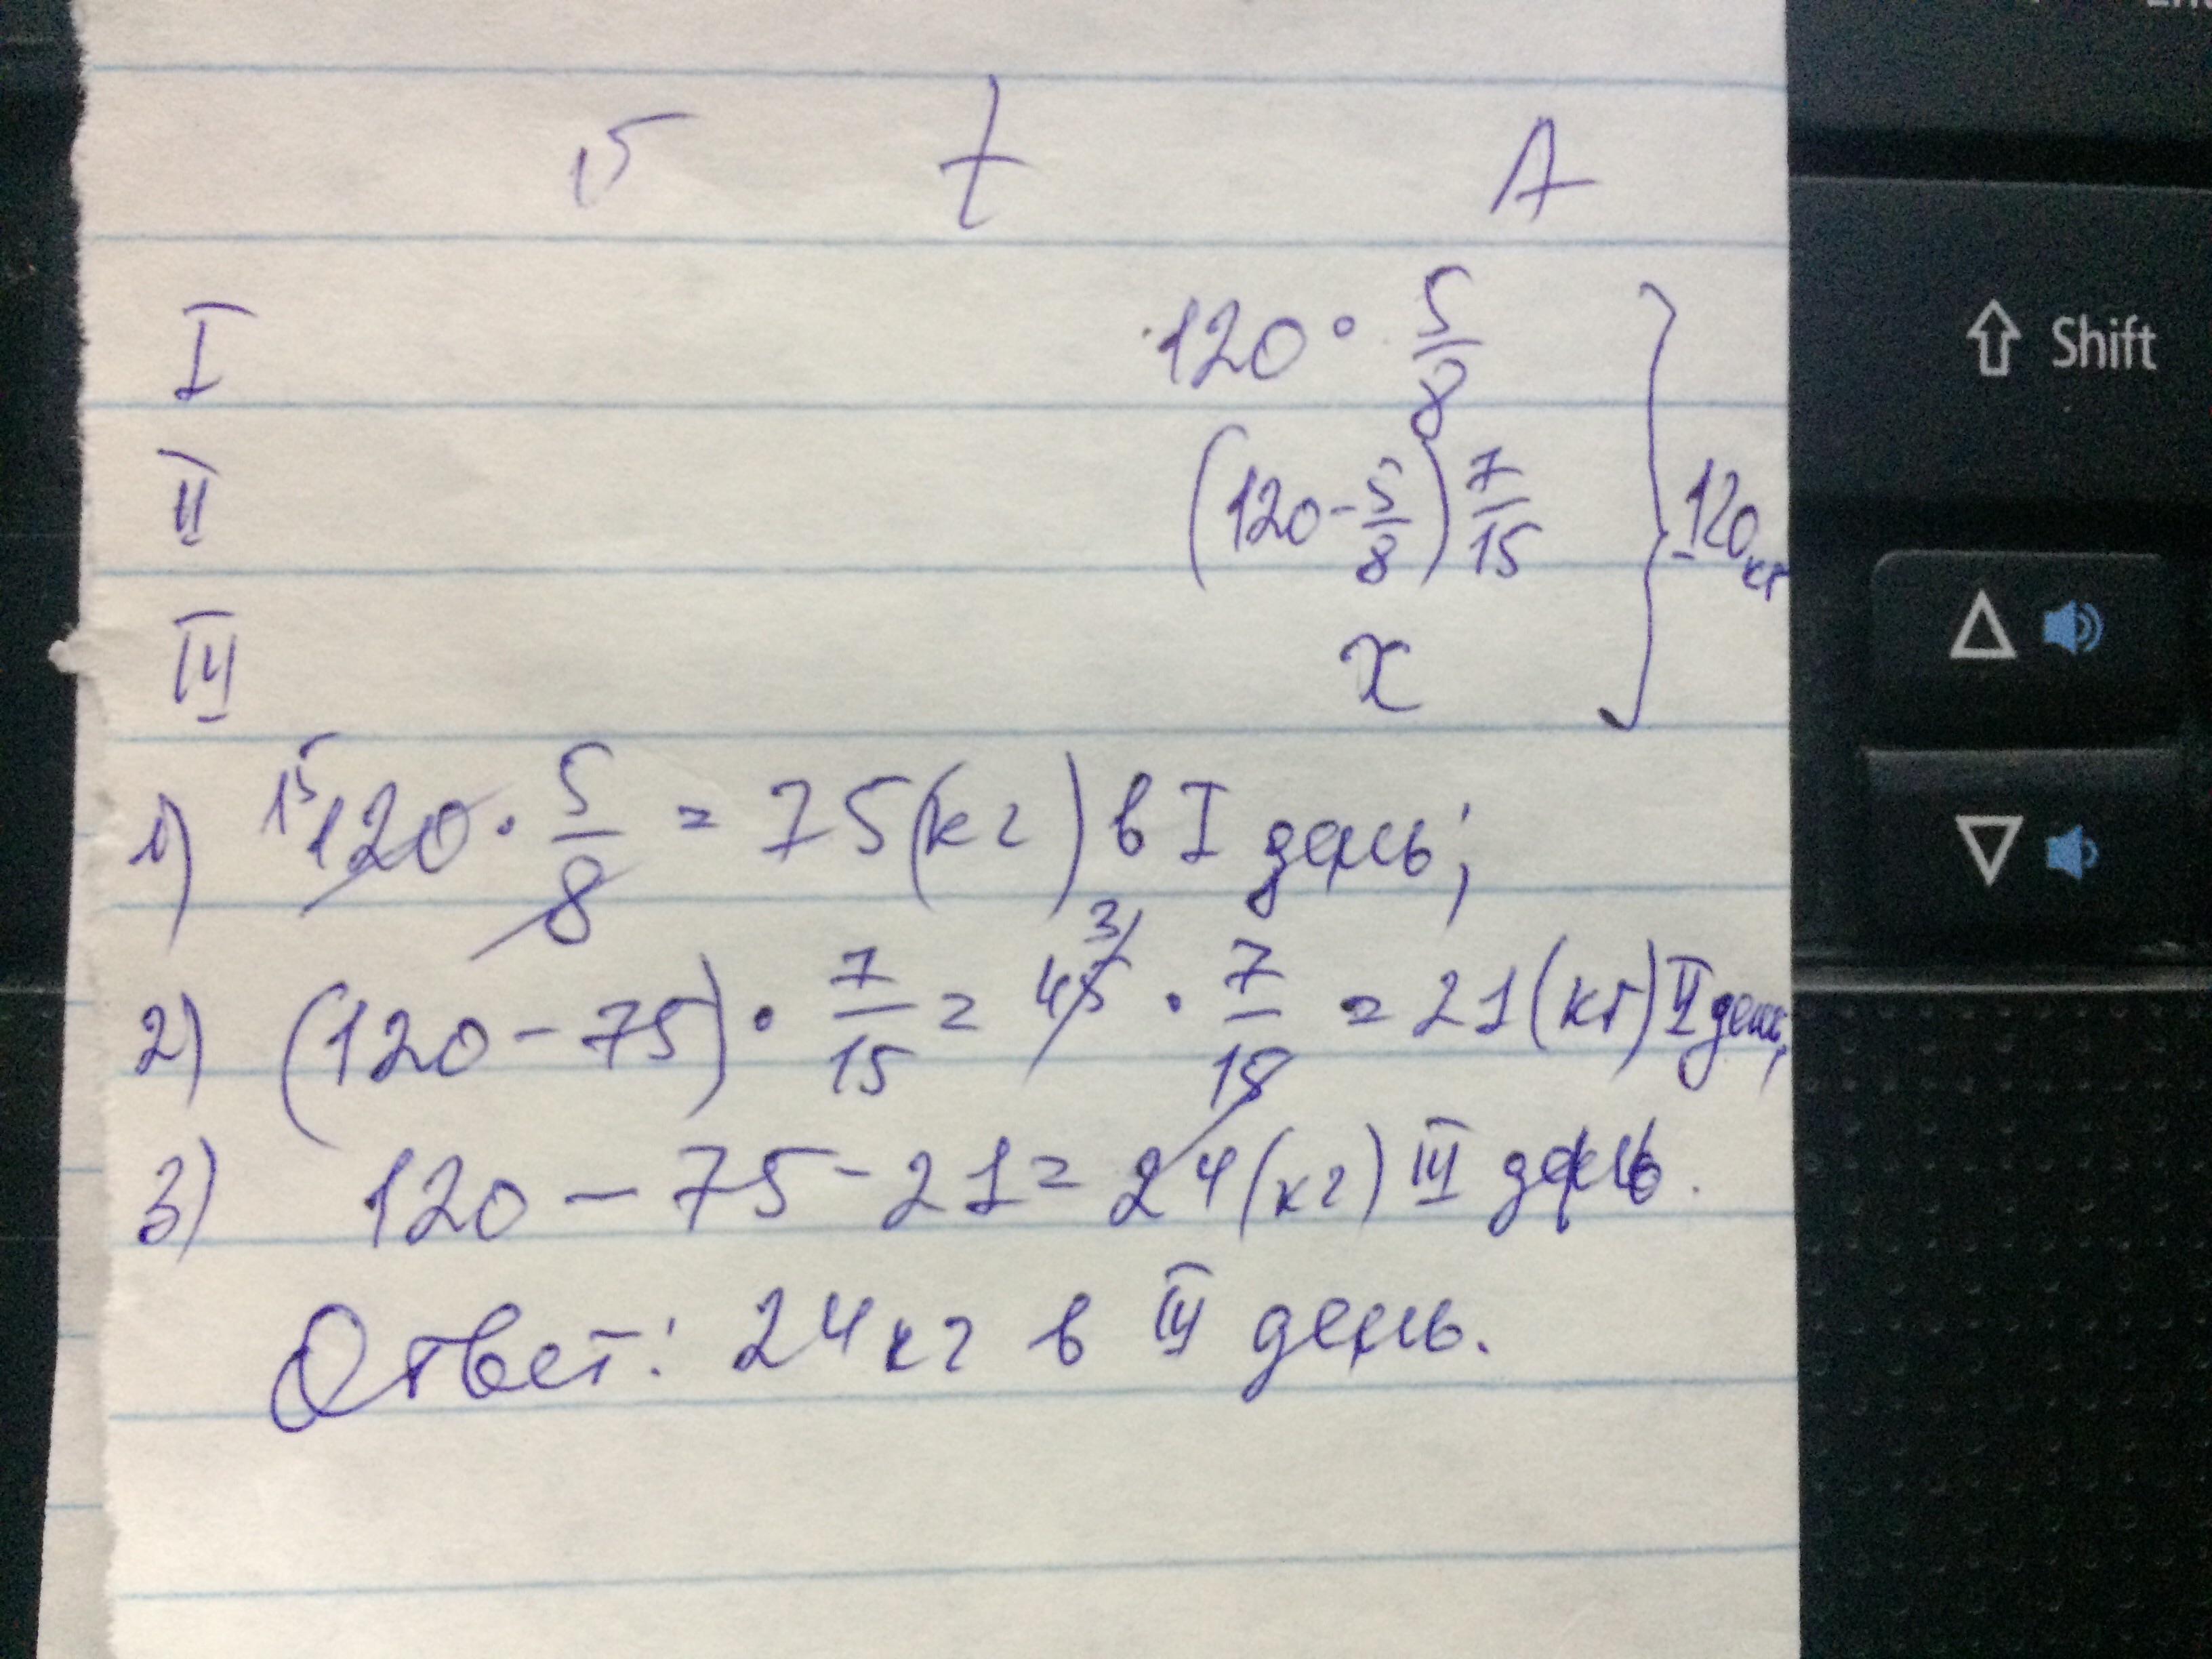 v t A
I 120 · 5/8
II (120 - 5/8) 7/15
III x
} 120 кг
1) 15 120 · 5/8 = 75 (кг) в I день;
2) (120 - 75) · 7/15 = 45 3 · 7/15 = 21 (кг) II день;
3) 120 - 75 - 21 = 24 (кг) III день.
Ответ: 24 кг в III день.
Shift